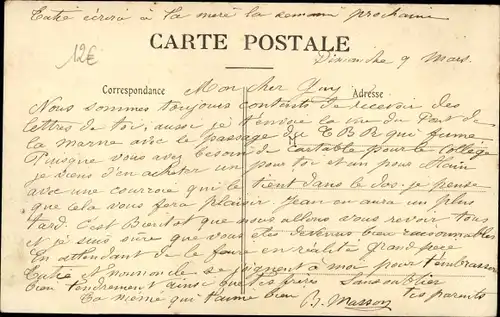 Tatie écrira à ta mère la semaine prochaine
12€
CARTE POSTALE
Dimanche 9 Mars.
Correspondance
Adresse
Mon cher Guy
Nous sommes toujours contents de recevoir des
lettres de toi, aussi je t'envoie la vue du Pont de
la marne avec le passage du C B R qui fume
Puisque vous avez besoin de Cartable pour le Collège
je viens d'en acheter un pour toi et un pour Alain
avec une courroie qui le tient dans le dos. je pense
que cela vous fera plaisir. Jean en aura un plus
tard. C'est Bientot que nous allons vous revoir tous
et je suis sure que vous êtes devenus bien raisonnables
En attendant de le faire en réalité grand père
Tatie et se joignent à moi pour t'embrasser
bien tendrement ainsi que tes frères Sans oublier
tes parents
Ta mémé qui t'aime bien B. Masson